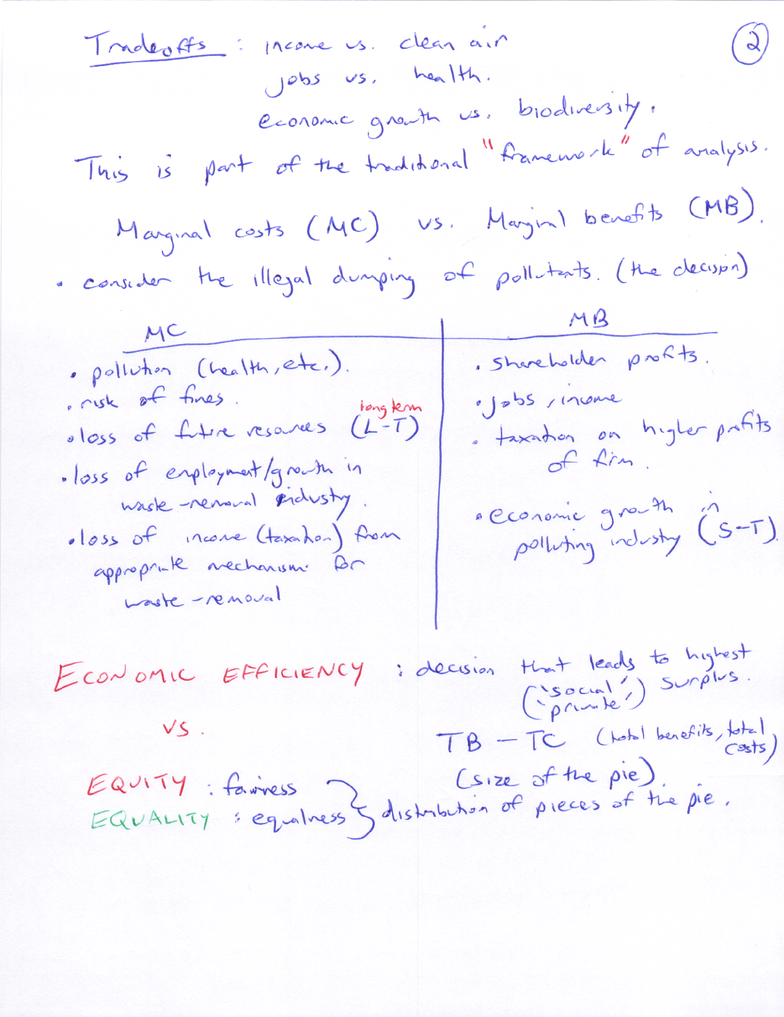 Tradeoffs : income vs. clean air
2
jobs vs. health.
economic growth vs. biodiversity.
This is part of the traditional "framework" of analysis.
Marginal costs (MC) vs. Marginal benefits (MB).
• consider the illegal dumping of pollutants. (the decision)
MC
• pollution (health, etc.).
• risk of fines.
long term
• loss of future resources (L-T)
• loss of employment/growth in
waste-removal industry.
• loss of income (taxation) from
appropriate mechanism for
waste-removal
MB
• shareholder profits.
• jobs, income
• taxation on higher profits
of firm.
• economic growth in
polluting industry (S-T).
ECONOMIC EFFICIENCY : decision that leads to highest
('social') surplus.
('private')
vs.
TB - TC (total benefits, total
costs)
(size of the pie).
EQUITY : fairness
EQUALITY : equalness } distribution of pieces of the pie.